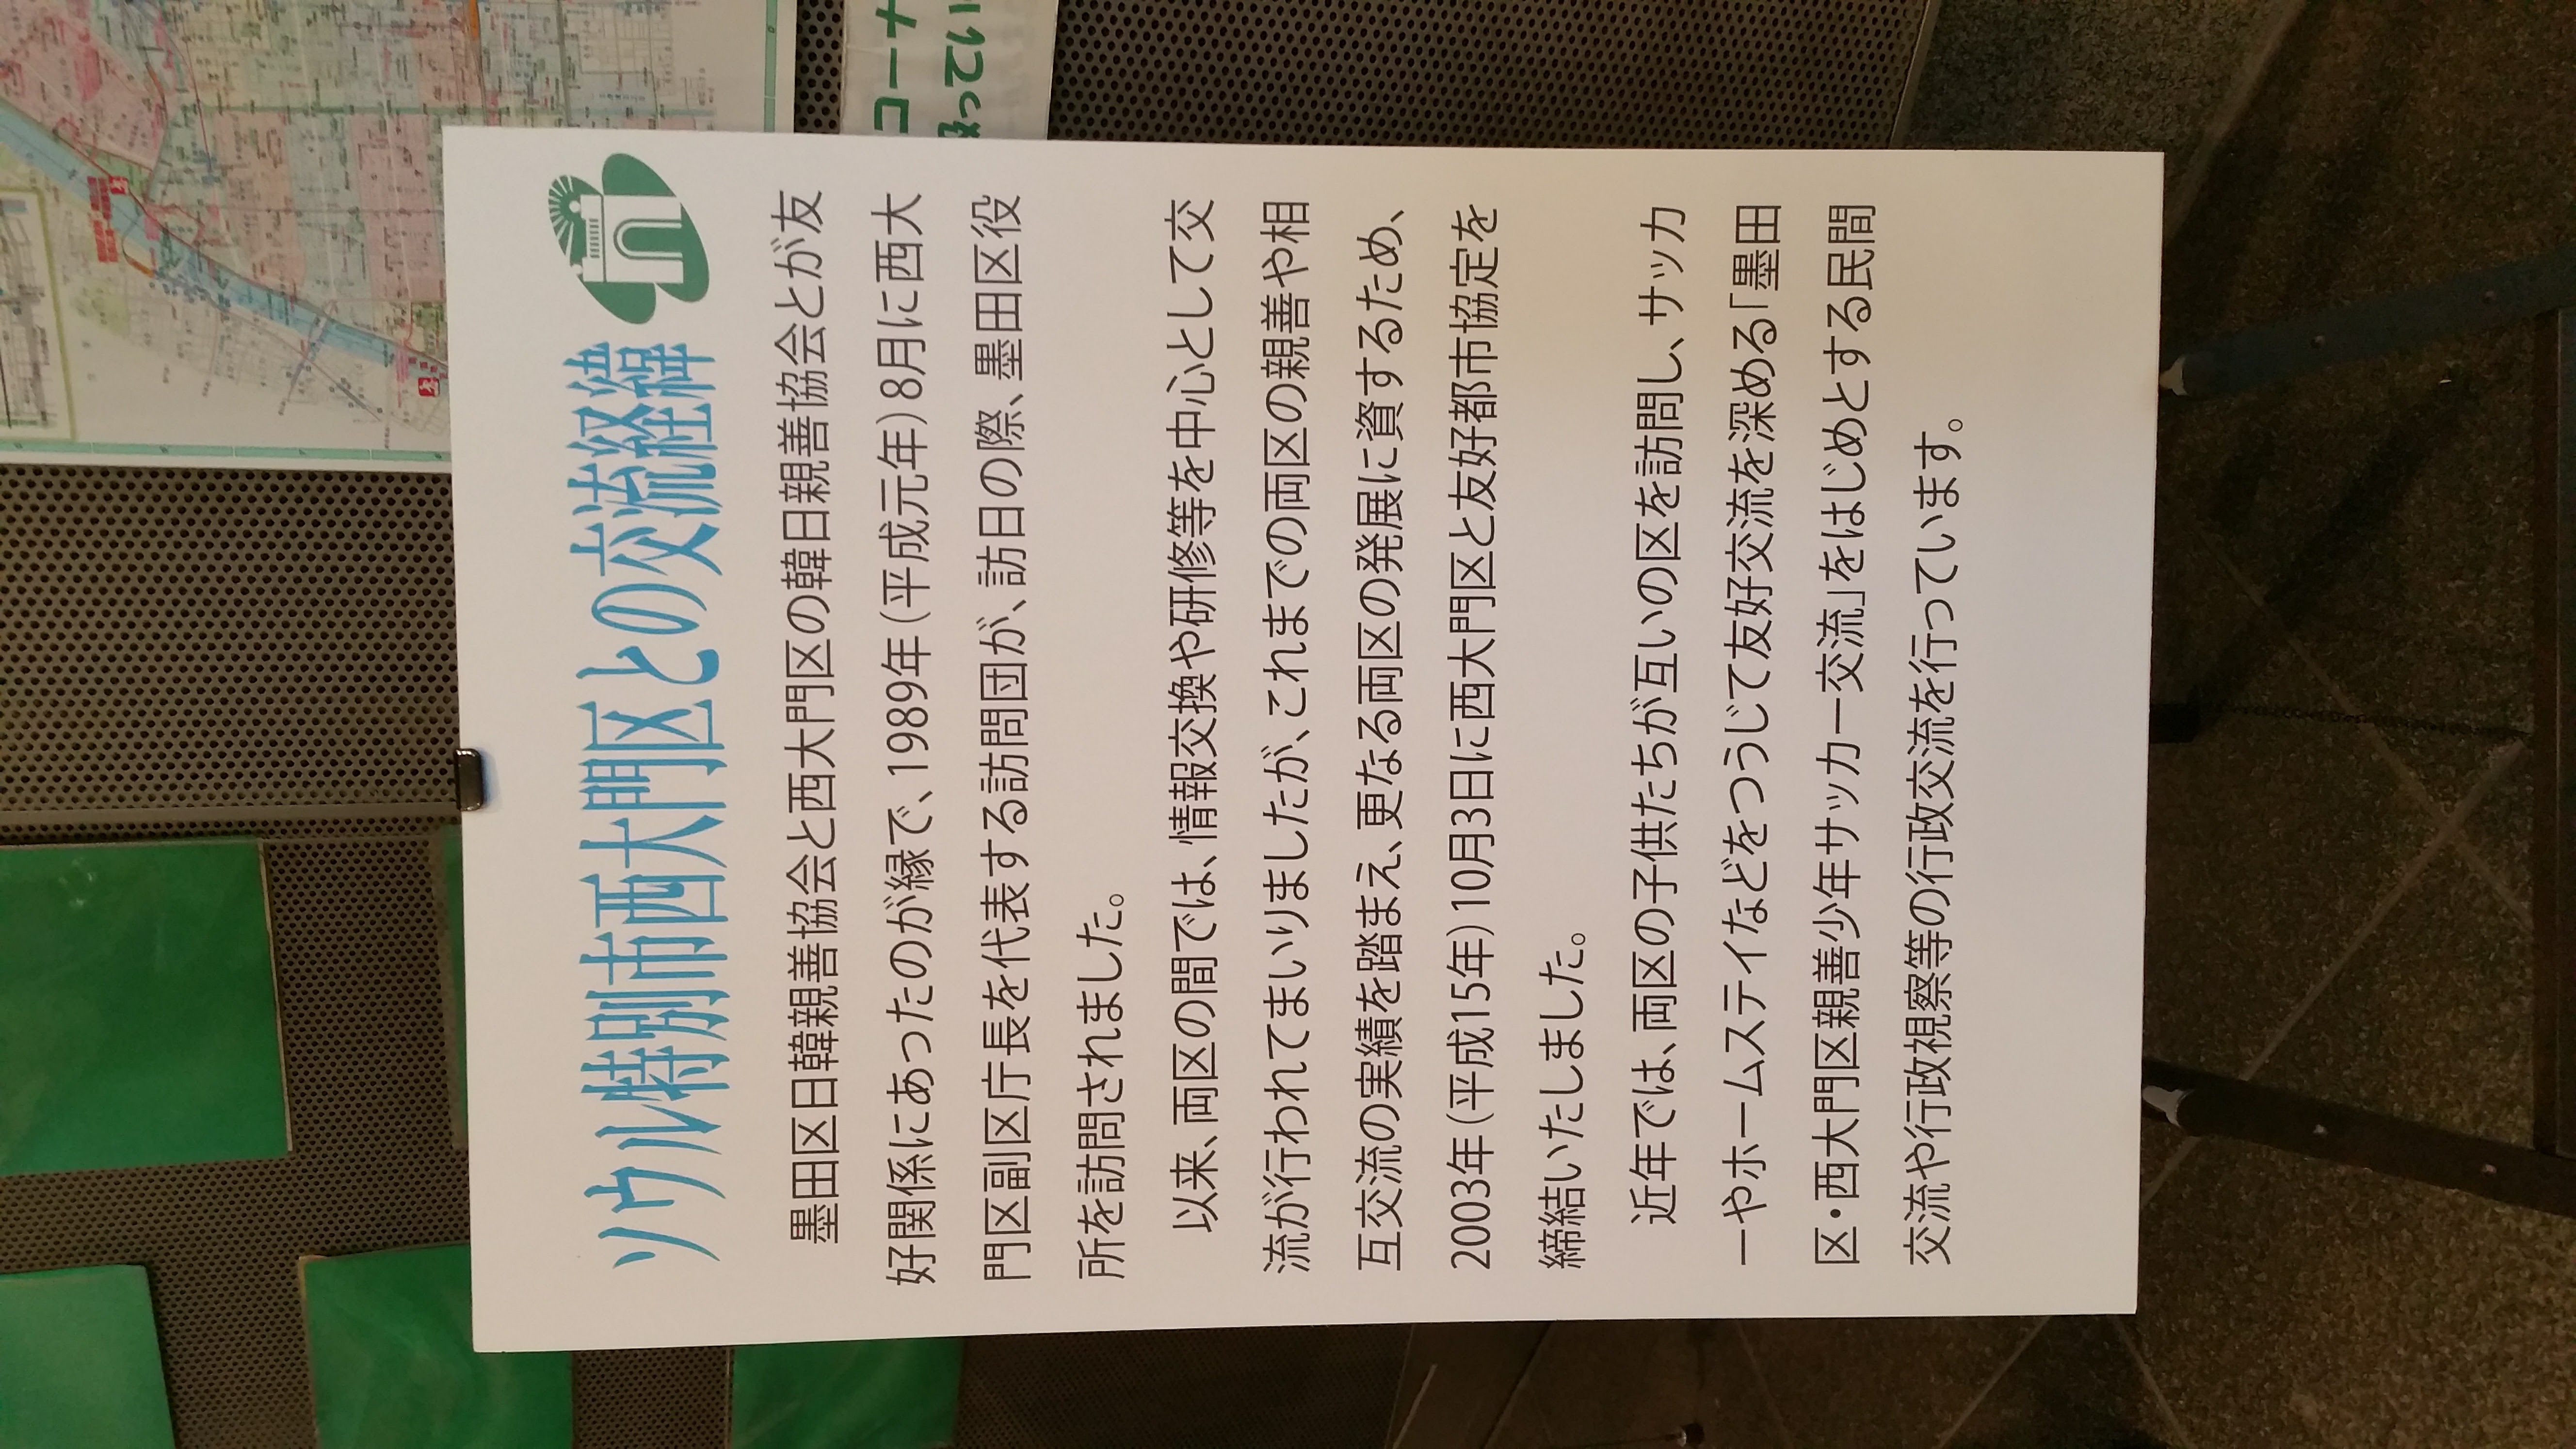 ソウル特別市西大門区との交流経緯
墨田区日韓親善協会と西大門区の韓日親善協会とが友
好関係にあったのが縁で、1989年(平成元年)8月に西大
門区副区庁長を代表する訪問団が、訪日の際、墨田区役
所を訪問されました。
以来、両区の間では、情報交換や研修等を中心として交
流が行われてまいりましたが、これまでの両区の親善や相
互交流の実績を踏まえ、更なる両区の発展に資するため、
2003年(平成15年)10月3日に西大門区と友好都市協定を
締結いたしました。
近年では、両区の子供たちが互いの区を訪問し、サッカ
ーやホームステイなどをつうじて友好交流を深める「墨田
区・西大門区親善少年サッカー交流」をはじめとする民間
交流や行政視察等の行政交流を行っています。
コーナ
ってい